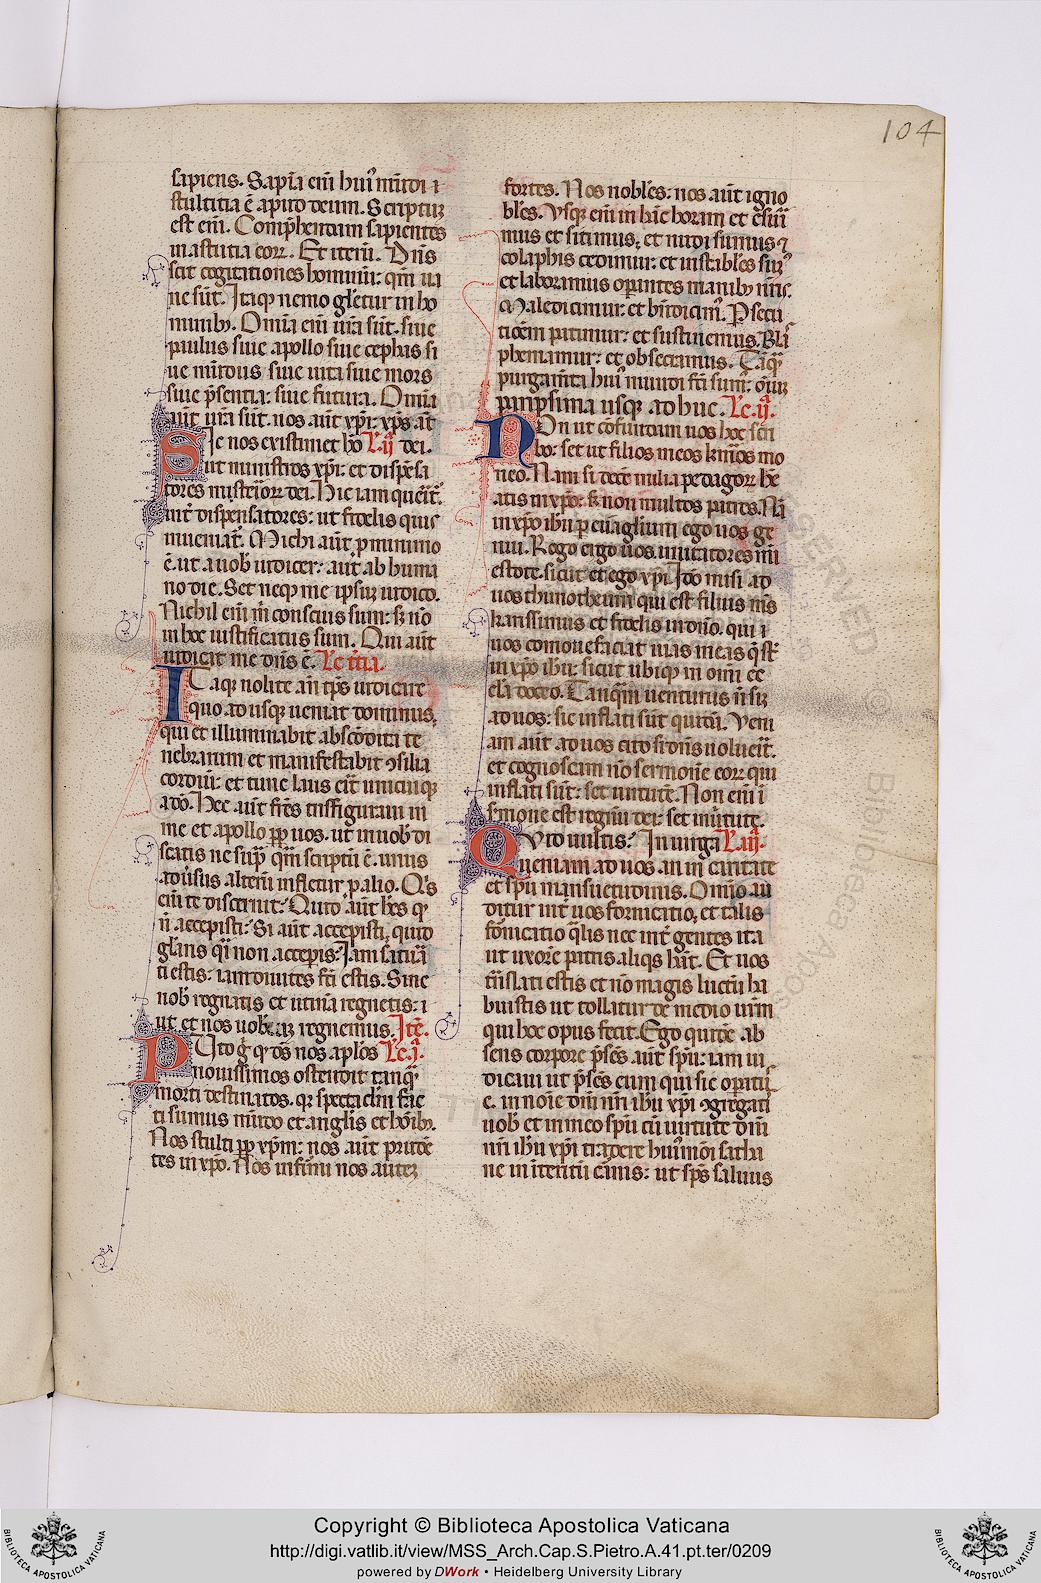 104
sapiens. Sapīa eni̅ hui᷒ mūdi ı
stultitia ē apud deum. Scriptuꝫ
est eni̅. Comp̄hendam sapientes
in astutia eoꝝ. Et iteru̅. Dn̅s
scit cogitationes hominu̅: qm̅ ua
ne su̅t. Itaqꝫ nemo gl̅etur in ho
minibꝫ. Om̅ia eni̅ ur̅a su̅t. siue
paulus siue apollo siue cephas si
ue mu̅dus siue uita siue mors
siue p̄sentia: siue futura. Om̅ia
aut̅ ur̅a su̅t. uos aut̅ xp̅i: xp̅s at̅
Sic nos existimet ho̅ L. ij. dei.
ut ministros xp̅i: et dispe̅sa
tores misterioꝝ dei. Hic iam querit᷒
int̅ dispensatores: ut fidelis quis
inueniat᷒. Michi aut̅ p minimo
ē. ut a uob̅ iudicer: aut̅ ab huma
no die. Set neqꝫ me ipsuꝫ iudico.
Nichil eni̅ m̅ conscius sum: sꝫ no̅
in hoc iustificatus sum. Qui aut̅
iudicat me dn̅s ē. Lc̅ t̅tia.
Itaqꝫ nolite an̅ tp̅s iudicare
quo adusqꝫ ueniat dominus.
qui et illuminabit absco̅dita te
nebrarum et manifestabit ꝯsilia
cordiu̅: et tunc laus erit unicuiqꝫ
a do̅. Hec aut̅ fr̅es tra̅sfiguraui in
me et apollo pp̅ uos. ut in uob̅ di
scatis ne sup̅ qm̅ scriptu̅ ē. unus
aduersus alteru̅ infletur p alio. Q's
eni̅ te discernit? Quid aut̅ hes̅ qꝫ
n̅ accepisti? Si aut̅ accepisti, quid
gl̅aris q̅i non acceperis? Iam satura̅
ti estis: iam diuites fc̅i estis. Sine
nob̅ regnatis et utina̅ regnetis: ı
ut et nos uobı̅scuꝫ regnemus. Ite̅.
Puto g̅ qꝫ ds̅ nos apl̅os Lc̅. j.
nouissimos ostendit tanqꝫ̅
morti destinatos. qꝫ spectacl̅m fac
ti sumus mu̅do et angl̅is et ho̅ibꝫ.
Nos stulti pp̅ xp̅m: uos aut̅ prude̅
tes in xp̅o. Nos infirmi uos auteꝫ
fortes. Uos nobl̅es: nos aut̅ igno
bl̅es. Vsqꝫ eni̅ in ha̅c horam et esuri
mus et sitimus, et nudi sumus ⁊
colaphis cedimur: et instabl̅es suꝫ᷒
et laboramus opantes manibꝫ nr̅is.
Maledicimur: et bn̅dicim᷒. Psecu
tio̅em patimur: et sustinemus. Blas
phemamur: et obsecramus. Ta̅qꝫ̅
purgame̅ta hui᷒ mundi fc̅i sum᷒: oiuꝫ
peripsima usqꝫ adhuc. Lc̅. ij.
Non ut co̅fundam uos hec scri
bo: set ut filios meos kr̅mos mo
neo. Nam si dece̅ milia pedagogoꝝ he̅
atis in xp̅o: sꝫ non multos patres. Na̅
in xp̅o ih̅u p euagl̅ium ego uos ge
nui. Rogo ergo uos imitatores mei
estote. sicut et ego xp̅i. Ido̅ misi ad
uos thimotheum qui est filius m̅s
karissimus et fidelis in dn̅o. qui ı
uos comonefaciat uias meas q̅ st̅
in xp̅o ih̅u: sicut ubiqꝫ in om̅i ec
cl̅a doceo. Tanqꝫ̅m uenturus n̅ siꝫ
ad uos: sic inflati su̅t quida̅. Veni
am aut̅ ad uos cito si dn̅s uoluerit.
et cognoscam no̅ sermone̅ eoꝝ qui
inflati su̅t: set uirtute̅. Non eni̅ i̅
s̅mone est regnu̅ dei: set in uirtute.
Quid uultis? In uirga L. iij.
ueniam ad uos. an in caritate
et sp̅u mansuetudinis. Om̅io au
ditur int̅ uos fornicatio, et talis
fo̅nicatio q̅lis nec int̅ gentes ita
ut uxore̅ patris aliqs ha̅t. Et uos
i̅flati estis et no̅ magis luctu̅ ha
buistis ut tollatur de medio ur̅m
qui hoc opus fecit. Ego quide̅ ab
sens corpore p̄se̅s aut̅ sp̅u: iam iu
dicaui ut p̄se̅s eum qui sic opatu᷒
ē. in no̅ie dn̅i nr̅i ih̅u xp̅i ꝯgregatis
uob̅ et in meo sp̅u cu̅ uirtute dn̅i
nr̅i ih̅u xp̅i tradere hui᷒mo̅i satha
ne in interitu̅ carnis: ut sp̅s saluus
Copyright © Biblioteca Apostolica Vaticana
http://digi.vatlib.it/view/MSS_Arch.Cap.S.Pietro.A.41.pt.ter/0209
powered by DWork • Heidelberg University Library
BIBLIOTECA APOSTOLICA VATICANA
BIBLIOTECA APOSTOLICA VATICANA